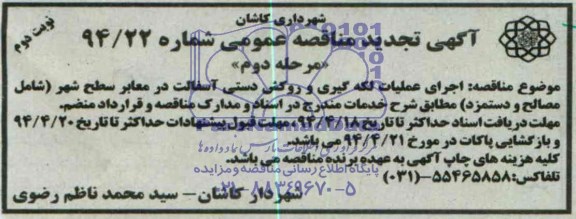 شهرداری کاشان
آگهی تجدید مناقصه عمومی شماره ۹۴/۲۲
نوبت دوم
«مرحله دوم»
موضوع مناقصه: اجرای عملیات لکه گیری و روکش دستی آسفالت در معابر سطح شهر (شامل
مصالح و دستمزد) مطابق شرح خدمات مندرج در اسناد و مدارک مناقصه و قرارداد منضم.
مهلت دریافت اسناد حداکثر تا تاریخ ۹۴/۴/۱۸، مهلت قبول پیشنهادات حداکثر تا تاریخ ۹۴/۴/۲۰
و بازگشایی پاکات در مورخ ۹۴/۴/۲۱ می باشد.
کلیه هزینه های چاپ آگهی به عهده برنده مناقصه می باشد.
پایگاه اطلاع رسانی مناقصه و مزایده
تلفاکس: ۵۵۴۶۵۸۵۸-(۰۳۱)
۰۲۱-۸۸۳۴۹۶۷۰-۵
شهردار کاشان – سید محمد ناظم رضوی